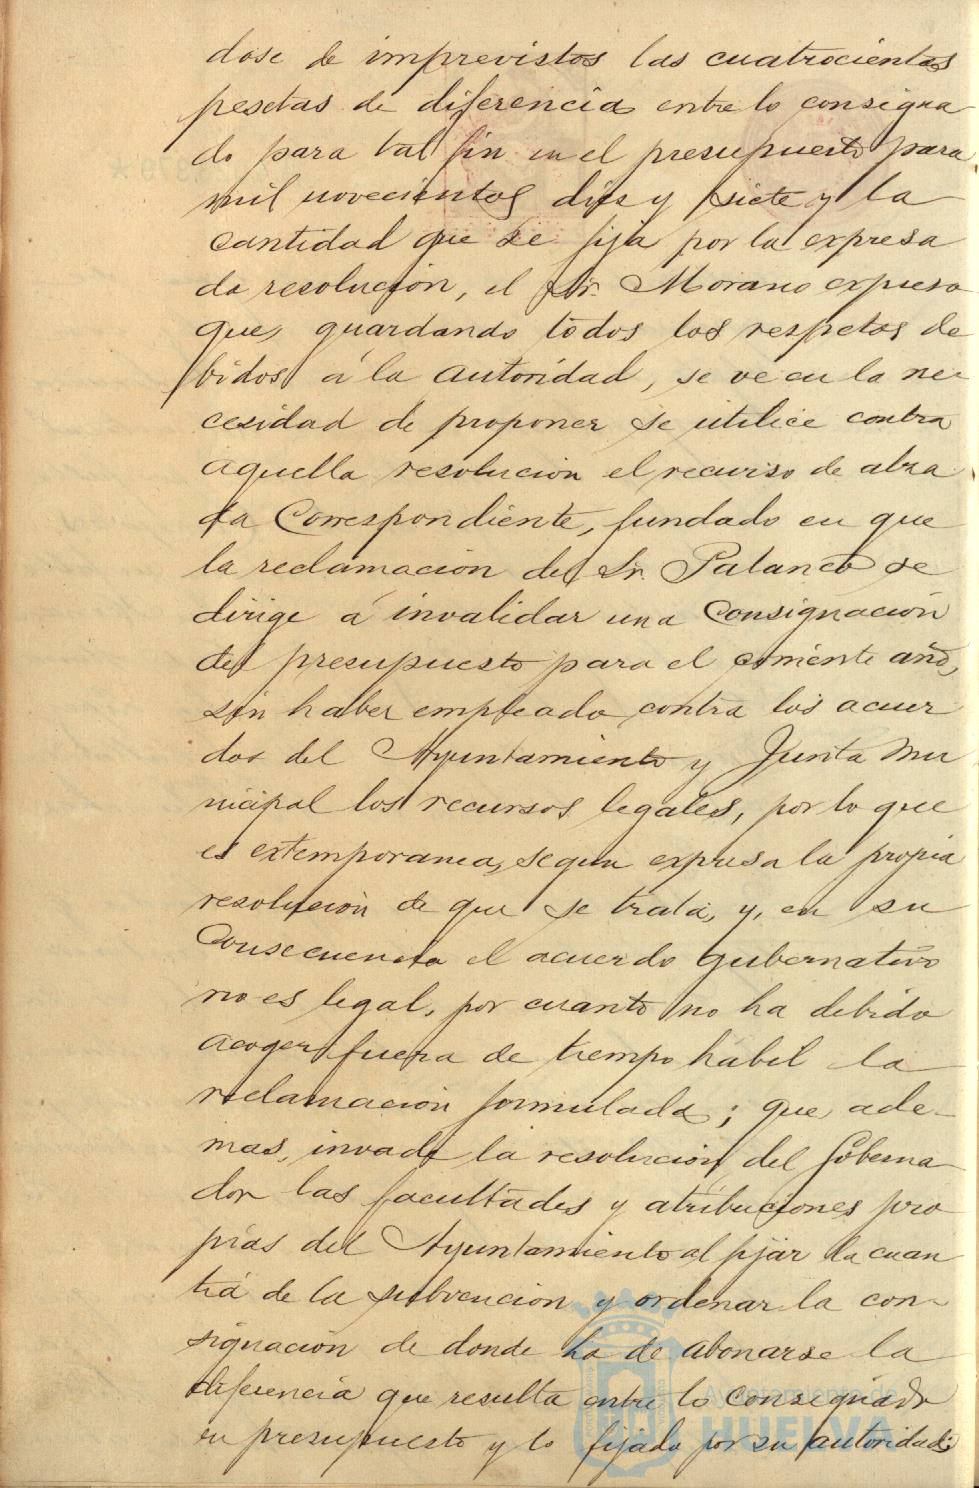 dose de imprevistos las cuatrocientas
pesetas de diferencia entre lo consigna-
do para tal fin en el presupuesto para
mil novecientos diez y siete y la
cantidad que se fija por la expresa
da resolución, el Sr. Morano expuso
que, guardando todos los respetos de
bidos á la autoridad, se ve en la ne-
cesidad de proponer se utilice contra
aquella resolución el recurso de alza
da correspondiente, fundado en que
la reclamación del Sr. Palanco se
dirige á invalidar una consignación
del presupuesto para el corriente año,
sin haber empleado contra los acuer
dos del Ayuntamiento y Junta Mu
nicipal los recursos legales, por lo que
es extemporanea, segun expresa la propia
resolución de que se trata, y, en su
consecuencia el acuerdo gubernativo
no es legal, por cuanto no ha debido
acoger fuera de tiempo habil la
reclamación formulada; que, ade-
mas, invade la resolución del Goberna
dor las facultades y atribuciones pro
pias del Ayuntamiento al fijar la cuan
tía de la subvención y ordenar la con-
signación de donde ha de abonarse la
diferencia que resulta entre lo consegnado
en presupuesto y lo fijado por su autoridad;
Ayuntamiento de
HUELVA